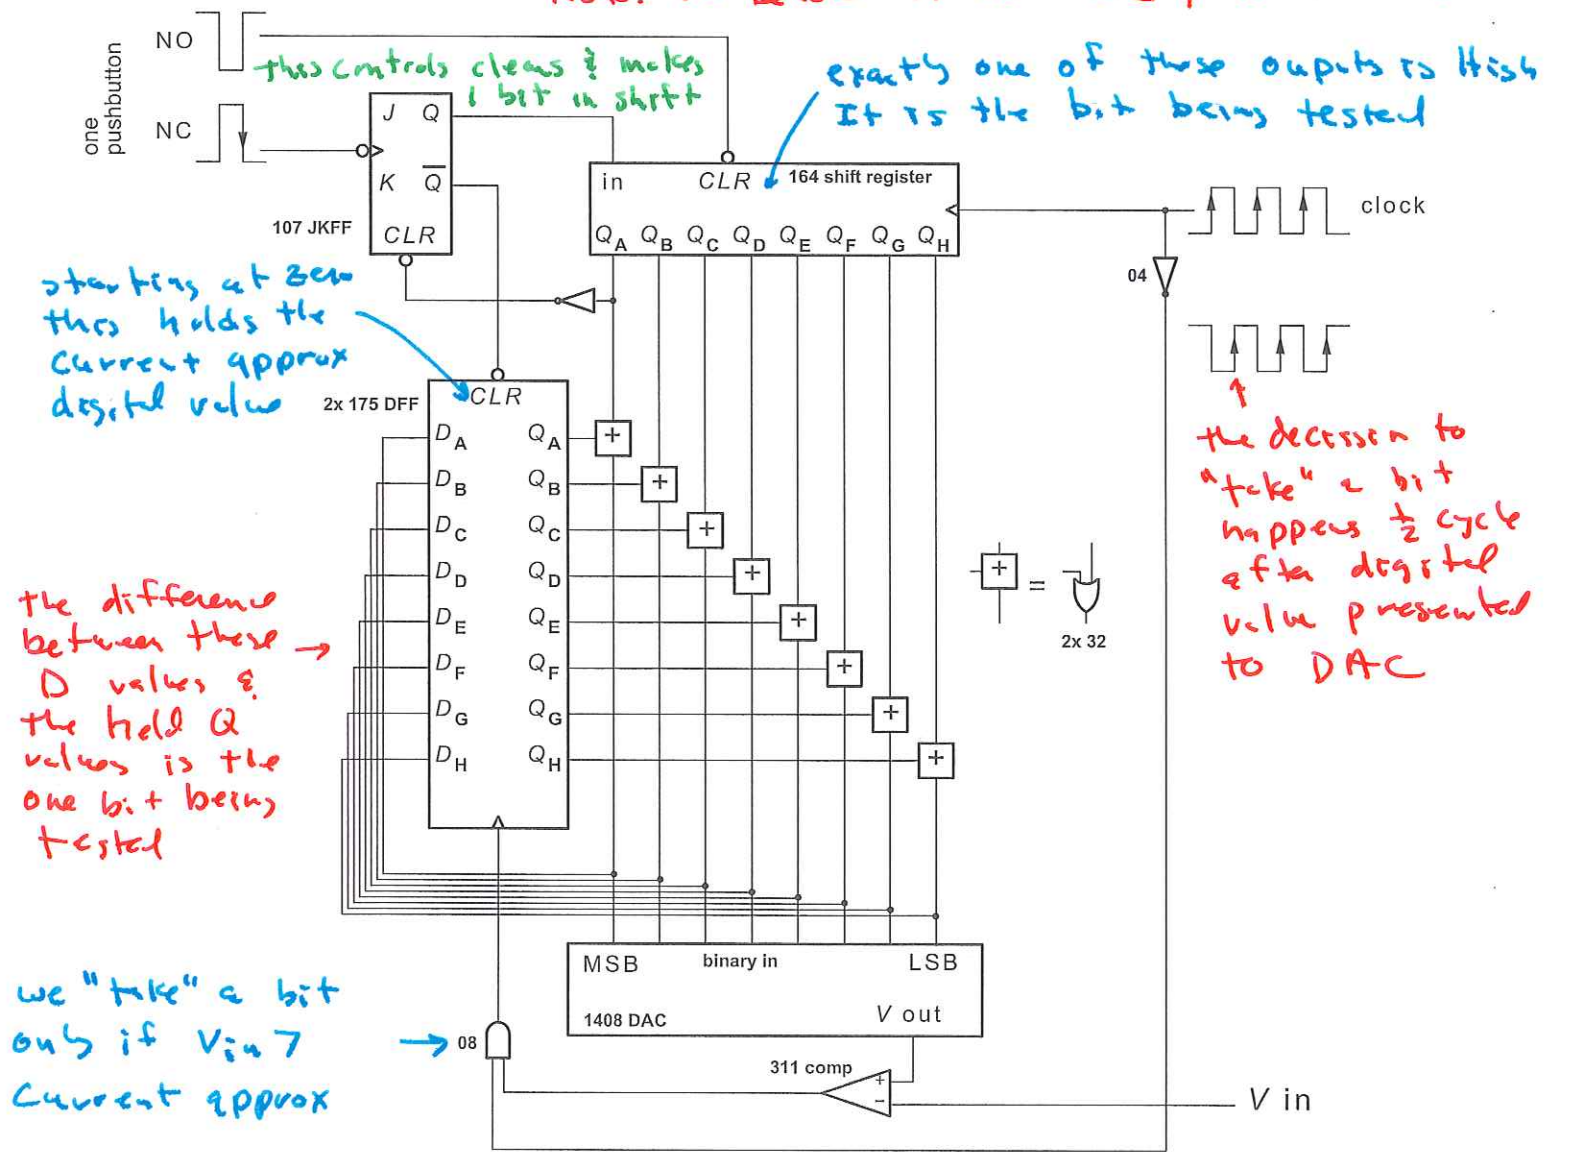 NO
this controls clears & makes
1 bit in shift
exactly one of these ouputs is High
It is the bit being tested
one
pushbutton
NC
J Q
K Q
CLR
107 JKFF
in CLR 164 shift register
QA QB QC QD QE QF QG QH
clock
04
starting at zero
this holds the
current approx
digital value
2x 175 DFF
CLR
DA QA +
DB QB +
DC QC +
DD QD +
DE QE +
DF QF +
DG QG +
DH QH +
+ =
2x 32
the decission to
"take" a bit
happens 1/2 cycle
after digital
value presented
to DAC
the difference
between these
D values &
the held Q
values is the
one bit being
tested
MSB binary in LSB
1408 DAC V out
we "take" a bit
only if Vin >
Current approx
08
311 comp
+
-
V in